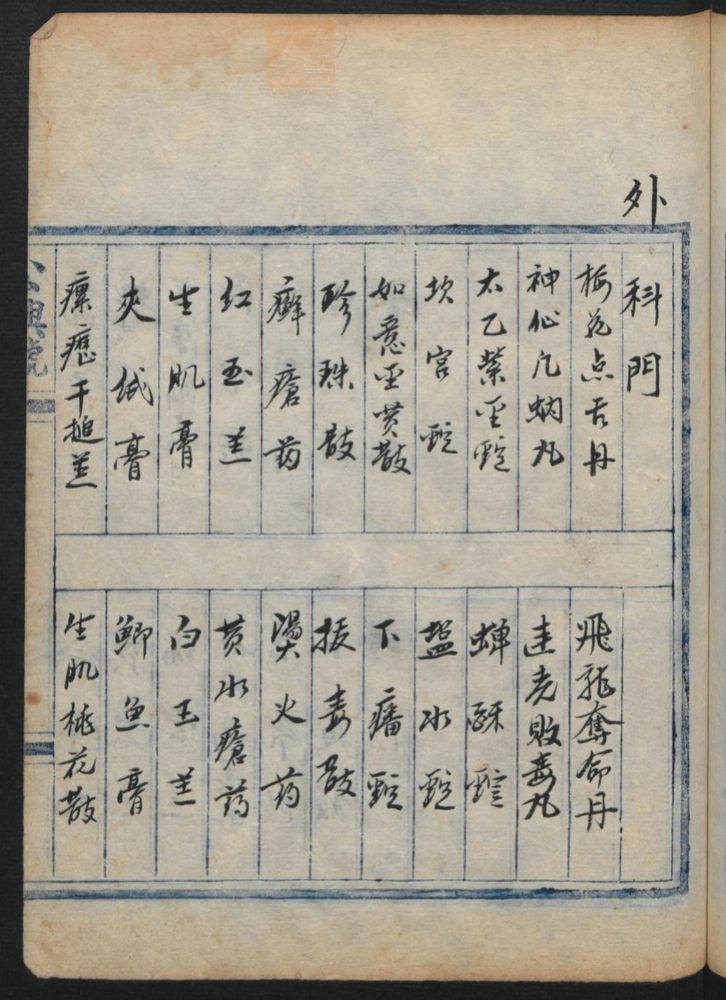 外科門
梅花点舌丹
飛龍奪命丹
神仙凡蜗丸
連壳敗毒丸
太乙紫金錠
蟬酥錠
坎宫錠
塩水錠
如意金黄散
下瘡錠
珍珠散
拔毒散
癬瘡药
燙火药
红玉羔
黄水瘡药
生肌膏
白玉羔
夾紙膏
鯽魚膏
瘰癧千搥羔
生肌桃花散